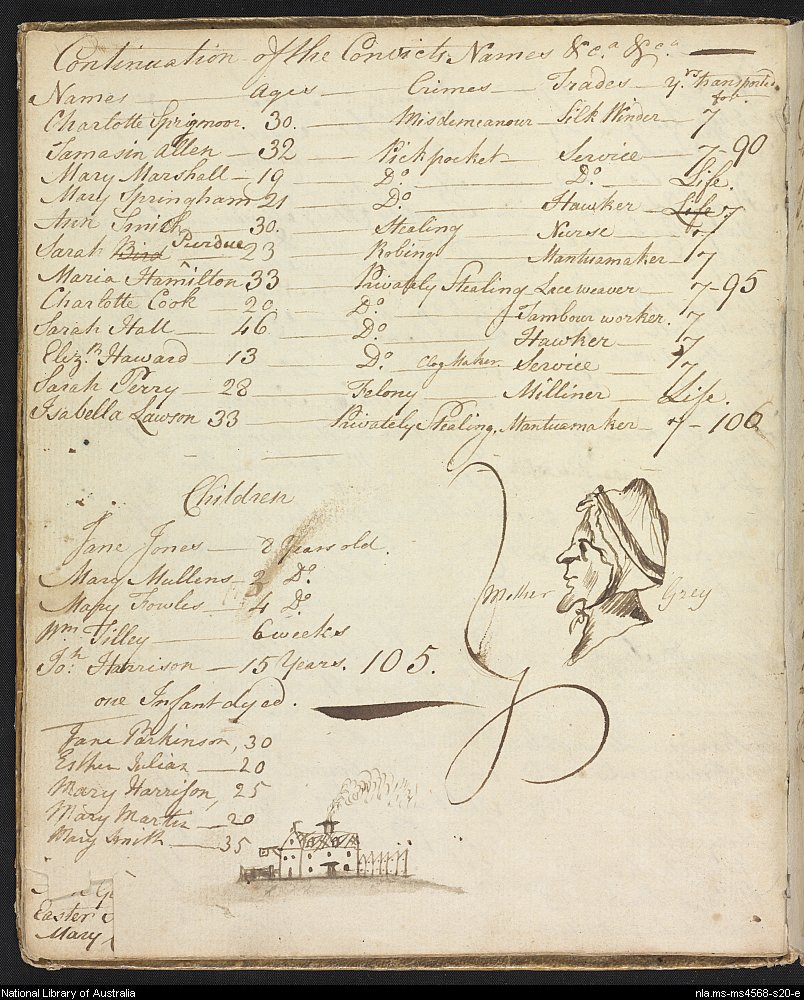 Continuation of the Convicts Names &c.a &c.a
Names — Ages — Crimes — Trades — yrs transported for
Charlotte Sprigmoor. 30. — Misdemeanour — Silk Winder — 7
Tamasin Allen — 32 — Pickpocket — Service — 7 - 90
Mary Marshall — 19 — Do. — Do. — Life.
Mary Springham 21 — Do. — Hawker — Life 7
Ann Smith — 30. — Stealing — Nurse — 7
Sarah Bird Purdue 23 — Robing — Mantuamaker — 7
Maria Hamilton 33 — Privately Stealing Lace weaver — 7 - 95
Charlotte Cook — 20 — Do. — Tambour worker. 7
Sarah Hall — 46 — Do. — Hawker — 7
Eliz.h Haward — 13 — Do. Clog Maker. Service — 7
Sarah Perry — 28 — Felony — Milliner — Life.
Isabella Lawson 33 — Privately Stealing, Mantuamaker — 7 - 106
Children
Jane Jones — 8 Years old.
Mary Mullens — 2 Do.
Mary Fowles — 4 Do.
Wm Tilley — 6 weeks
Jo:h Harrison — 15 Years. 105.
one Infant dyed.
Mother Grey
Jane Parkinson, 30
Esther Julian — 20
Mary Harrison, 25
Mary Martin — 20
Mary Smith — 35
Easter
Mary
National Library of Australia
nla.ms-ms4568-s20-e